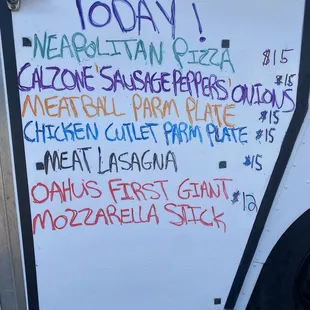 TODAY!
NEAPOLITAN PIZZA $15
CALZONE 'SAUSAGE PEPPERS ONIONS $15
MEATBALL PARM PLATE $15
CHICKEN CUTLET PARM PLATE $15
MEAT LASAGNA $15
OAHUS FIRST GIANT $12
MOZZARELLA STICK